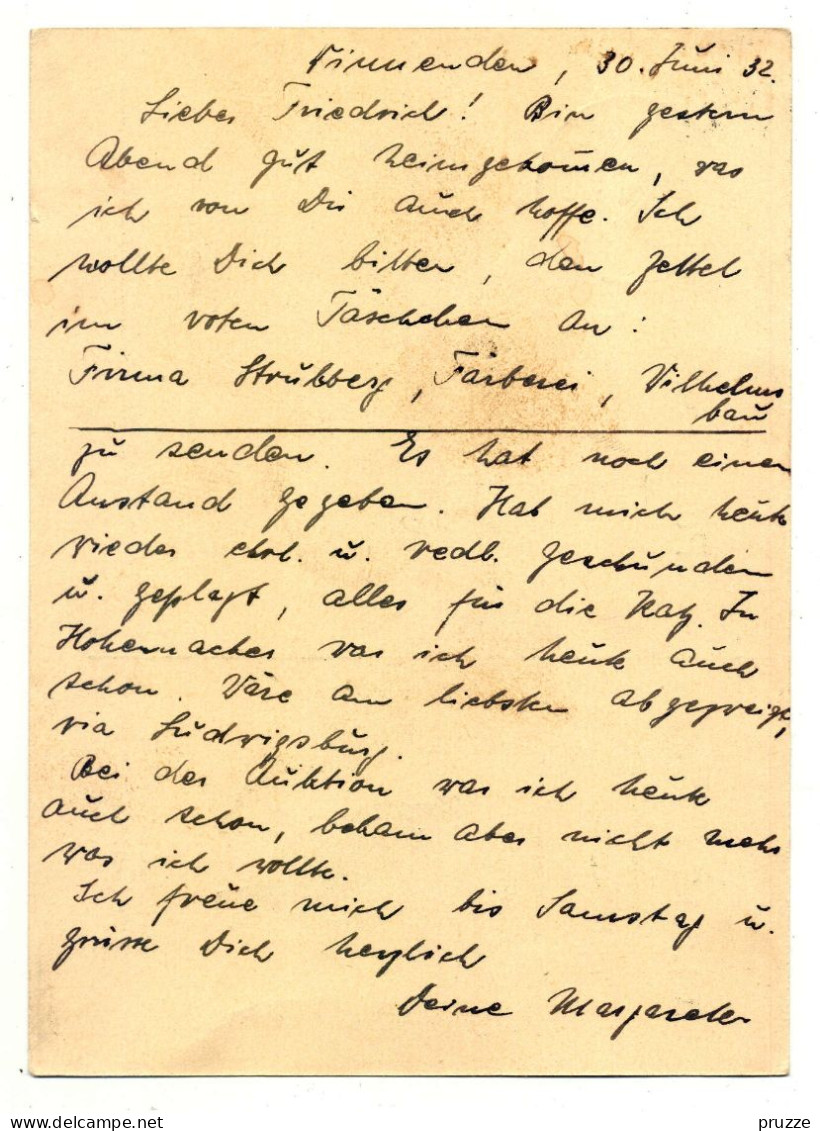 Winnenden, 30. Juni 32.
Lieber Friedrich! Bin gestern
Abend gut heimgekom̅en, was
ich von Dir auch hoffe. Ich
wollte Dich bitten, den Zettel
im roten Täschchen an:
Firma Strubberg, Färberei, Wilhelms
bau
zu senden. Es hat noch einen
Anstand gegeben. Hab mich heute
wieder ehrl. u. redl. geschunden
u. geplagt, alles für die Katz. In
Hohenacker war ich heute auch
schon. Wäre am liebsten abgezweigt,
via Ludwigsburg.
Bei der Auktion war ich heute
auch schon, bekam aber nicht mehr
was ich wollte.
Ich freue mich bis Samstag u.
grüsse Dich herzlich
Deine Margarete
pruzze